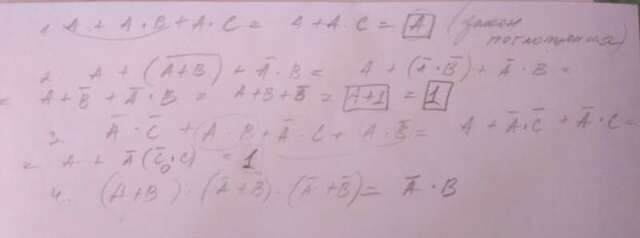 1. A + A · B + A · C = A + A · C = A (закон поглощения)
2. A + (A̅+̅B̅) + A̅ · B = A + (A̅ · B̅) + A̅ · B =
= A + B̅ + A̅ · B = A + B + B̅ = A+1 = 1
3. A̅ · C̅ + A · B + A̅ · C + A · B̅ = A + A̅ · C̅ + A̅ · C =
= A + A̅ (C̅ · C) = 1
4. (A+B) · (A̅+B) · (A̅+B̅) = A̅ · B